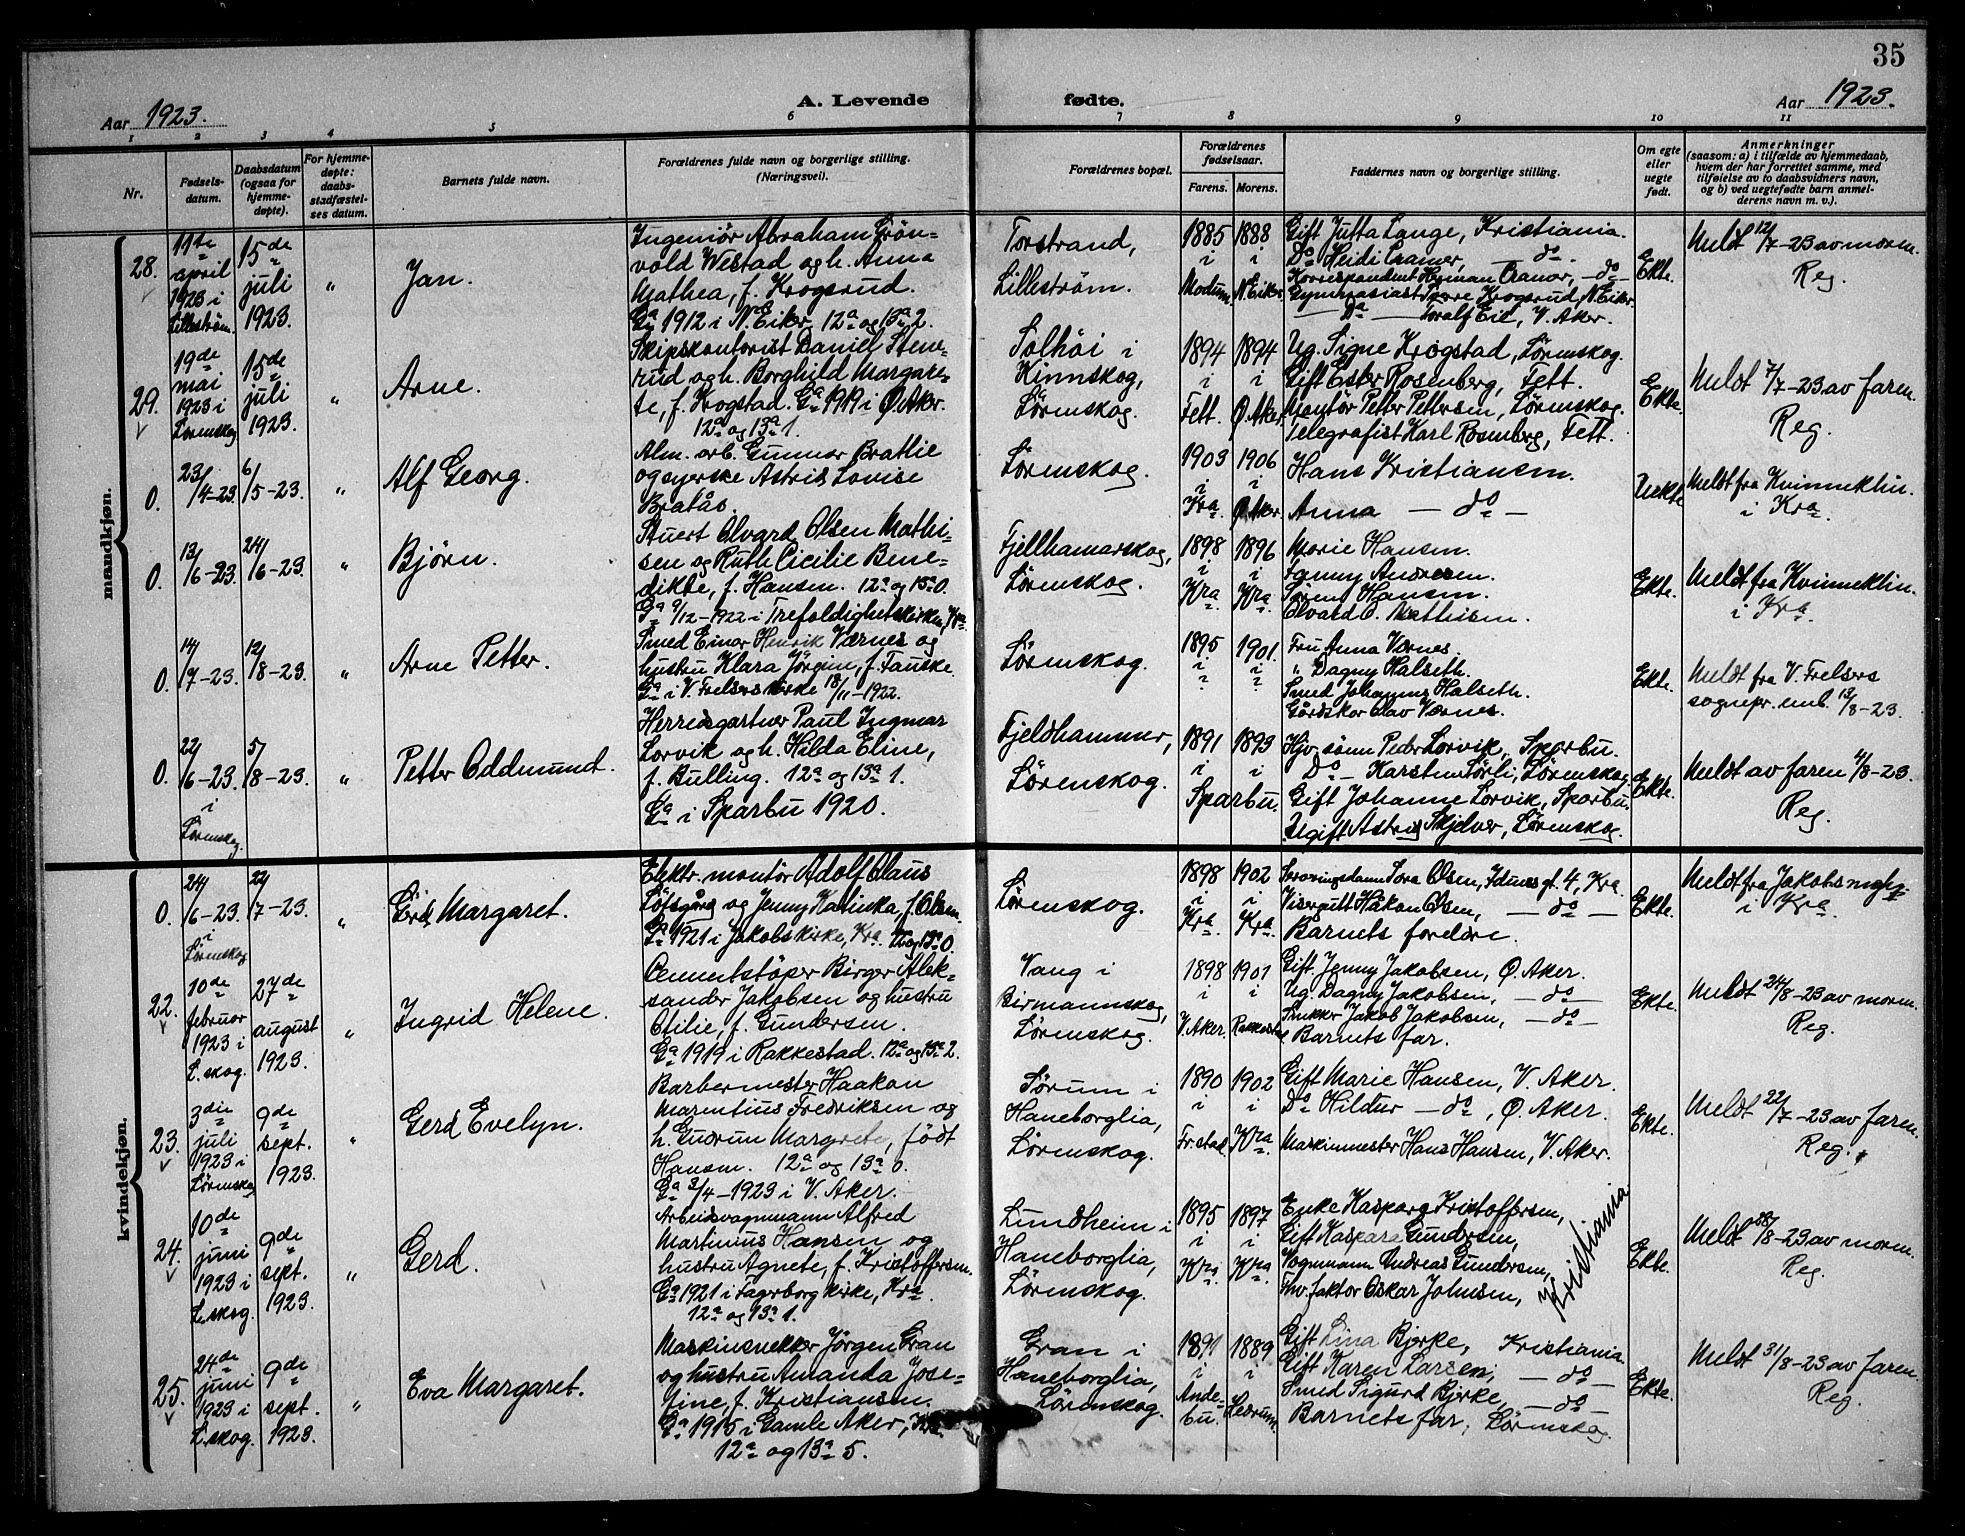 35
Aar 1923. A. Levende fødte. Aar 1923.
1 2 3 4 5 6 7 8 9 10 11
Nr.
Fødsels-
datum.
Daabsdatum
(ogsaa for
hjemme-
døpte).
For hjemme-
døpte:
daabs-
stadfæstel-
ses datum.
Barnets fulde navn.
Forældrenes fulde navn og borgerlige stilling.
(Næringsvei).
Forældrenes bopæl.
Forældrenes
fødselsaar.
Farens. Morens.
Faddernes navn og borgerlige stilling.
Om egte
eller
uegte
født.
Anmerkninger
(saasom: a) i tilfælde av hjemmedaab,
hvem der har forrettet samme, med
tilføielse av to daabsvidners navn,
og b) ved uegtefødte barn anmel-
derens navn m. v.).
mandkjøn.
28.
11te
april
1923 i
Lillestrøm.
15de
juli
1923.
"
Jan.
Ingeniør Abraham Grøn-
vold Westad og h. Anna
Mathea, f. Krogsrud.
Ga 1912 i N. Eiker. 12a og 13a 2.
Torstrand,
Lillestrøm.
1885 1888
i i
Modum N. Eiker.
Gift Jutta Lange, Kristiania.
Do Heidi Cramer, — do —.
Korrespondent Herman Cranor, — do —
Gymnasiast Sverre Krogsrud, N. Eiker.
— Do — Toralf Eie, V. Aker.
Ekte.
Meldt 12/7-23 av morm.
Reg.
29.
19de
mai
1923 i
Lørenskog
15de
juli
1923.
"
Arne.
Skipskontorist Daniel Stene-
rud og h. Borghild Margare-
te, f. Krogstad. Ga 1919 i Ø. Aker.
12a og 13a 1.
Solhöi i
Kinnskog,
Lørenskog.
1894 1894
i i
Fett. Ø. Aker.
Ug. Signe Krogstad, Lørenskog.
Gift Ester Rosenberg, Fett.
Montör Petter Pettersen, Lørenskog.
Telegrafist Karl Rosenberg, Fett.
Ekte.
Meldt 7/7-23 av faren.
Reg.
0.
23/4-23.
6/5-23.
"
Alf Georg.
Alm. arb. Gunnar Brattlie
og syerske Astrid Lovise
Bratås.
Lørenskog.
1903 1906
i i
Kra. Ø. Aker.
Hans Kristiansen.
Anna — do —
Uekte
Meldt fra Kvinneklin.
i Kra.
0.
13/6-23.
24/6-23.
"
Björn.
Stuert Alvard Olsen Mathi-
sen og Ruth Cicilie Bene-
dikte, f. Hansen. 12a og 13a 0.
Ga 9/12-1922 i Trefoldighetskirken, Kra.
Fjellhamarskog,
Lørenskog.
1898 1896
i i
Kra Kra.
Marie Hansen.
Fanny Andresen.
Sören Hansen.
Alvard O. Mathisen.
Ekte.
Meldt fra Kvinneklin.
i Kra.
0.
14/7-23.
12/8-23.
"
Arne Petter.
Smed Einar Henrik Værnes og
hustru Klara Jörgine, f. Fauske.
Ga i V. Frelsers kirke 18/11-1922.
Lørenskog.
1895 1901.
i i
? ?
Fru Anna Værnes.
" Dagny Halseth.
Smed Johannes Halseth.
Gårdskar Olav Værnes.
Ekte.
Meldt fra V. Frelsers
sognepr. emb. 13/8-23.
0.
22/6-23.
i
Lørenskog.
5/8-23.
"
Petter Oddmund.
Herredsgartner Paul Ingmar
Lorvik og h. Hilda Eline,
f. Bulling. 12a og 13a 1.
Ga i Sparbu 1920.
Fjeldhammer,
Lørenskog.
1891 1893
i i
Sparbu.
Hjv. sönn Peder Lorvik, Sparbu.
Do — Karsten Sörli, Lørenskog
Gift Johanne Lorvik, Sparbu.
Ugift Astrid Skjelver, Lørenskog.
Ekte.
Meldt av faren 4/8-23.
Reg.
kvindekjøn.
0.
24/6-23.
i
Lørenskog
22/7-23.
"
Gerd Margaret.
Elektr. montör Adolf Olaus
Löfsgård og Jenny Katinka, f. Olsen.
Ga 1921 i Jakobs kirke, Kra. 12a og 13a 0.
Lørenskog.
1898 1902
i i
Kra. Kra.
Tora Olsen, Idunsgt. 4, Kra.
Visergutt Håkon Olsen, — do —
Barnets foreldre.
Ekte.
Meldt fra Jakobs
i Kra.
22.
10de
februar
1923 i
L. skog.
27de
august
1923.
"
Ingrid Helene.
Cementstöper Birger Alek-
sander Jakobsen og hustru
Otilie, f. Gundersen.
Ga 1919 i Rakkestad. 12a og 13a 2.
Vang i
Birmannskog,
Lørenskog.
1898 1901
i i
V. Aker. Rakkestad
Gift. Jenny Jakobsen, Ø. Aker.
Ug. Dagny Jakobsen, — do —
Snekker Jakob Jakobsen, — do —
Barnets far.
Ekte.
Meldt 24/8-23 av morm.
Reg.
23.
3die
juli
1923 i
Lørenskog
9de
sept.
1923.
"
Gerd Evelyn.
Barbermester Haakon
Marentius Fredriksen og
h. Gudrun Margrete, født
Hansen. 12a og 13a 0.
Ga 3/4-1923 i V. Aker.
Sørum i
Haneborglia,
Lørenskog.
1890 1902
i i
Fr.stad Kra.
Gift Marie Hansen, V. Aker.
Do Hildur — do —, Ø. Aker.
Maskinmester Hans Hansen, V. Aker.
Ekte.
Meldt 22/7-23 av faren.
Reg.
24.
10de
juni
1923 i
L. skog.
9de
sept.
1923.
"
Gerd.
Arbeidsvognmann Alfred
Martinius Hansen og
hustru Agnete, f. Kristoffersen.
Ga 1921 i Fagerborg kirke, Kra.
12a og 13a 1.
Lundheim i
Haneborglia,
Lørenskog.
1895 1897
i i
Kra Kra
Enke Kaspara Kristoffersen,
Gift Kaspara Gundersen,
Vognmann Andreas Gundersen,
faktor Oskar Johnsen,
Kristiania
Ekte.
Meldt 28/8-23 av morm.
Reg.
25.
24de
juni
1923 i
L. skog.
9de
sept.
1923.
"
Eva Margaret.
Maskinsnekker Jörgen Gran
og hustru Amanda Jose-
fine, f. Kristiansen.
Ga 1915 i Gamle Aker, Kra.
12a og 13a 5.
Gran i
Haneborglia,
Lørenskog.
1891 1889
i i
Ande-
bu. Hedrum.
Gift Lina Bjerke, Kristiania
Gift Karen Larsen, — do —
Smed Sigurd Bjerke, — do —
Barnets far, Lørenskog.
Ekte.
Meldt 31/8-23 av faren.
Reg.